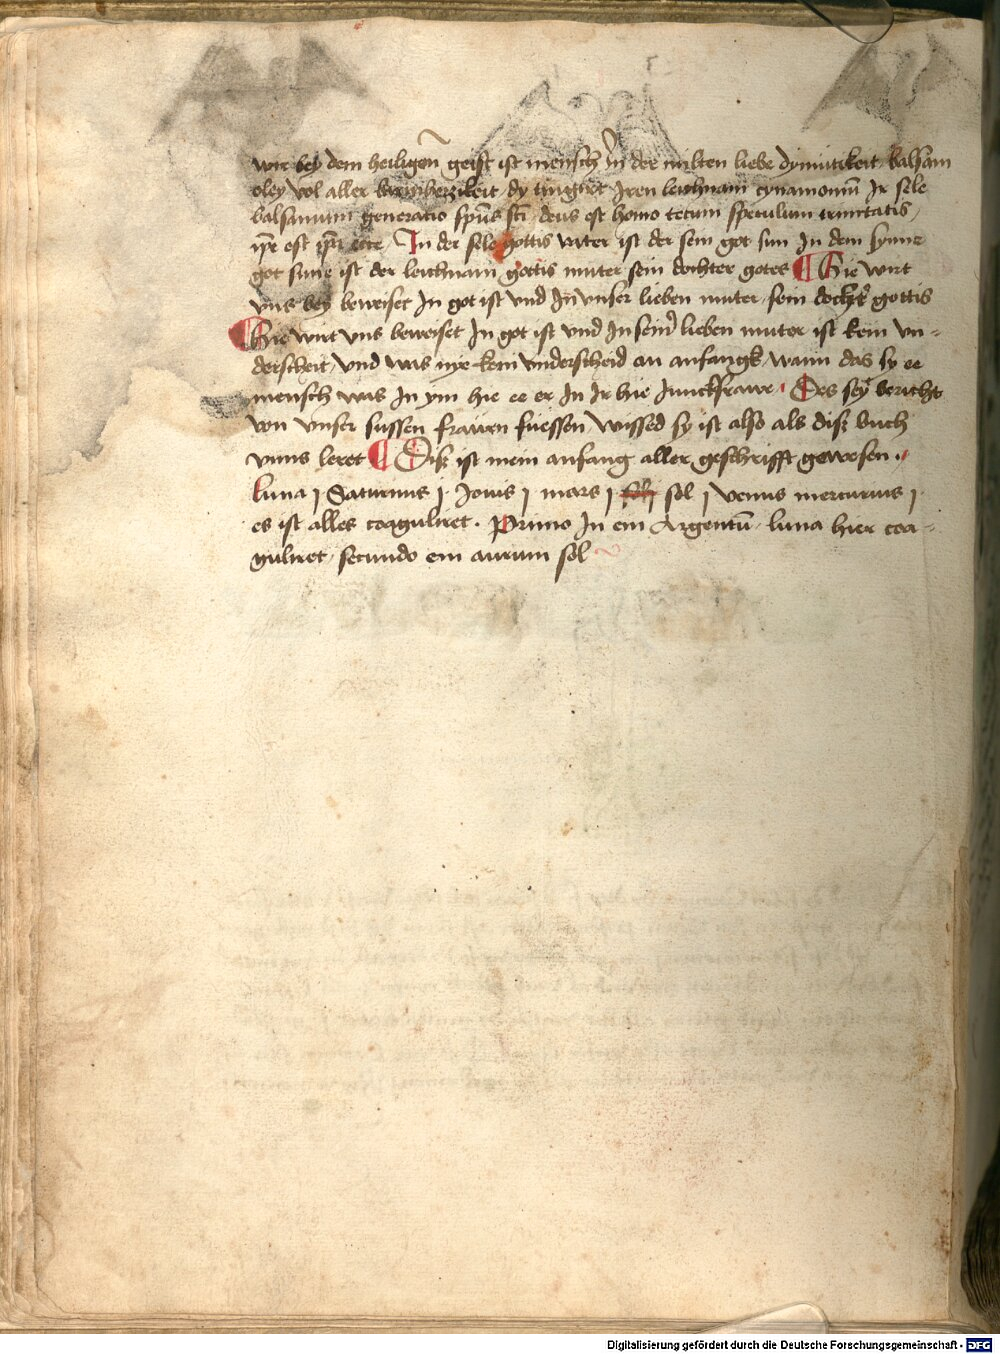 wir bey dem heiligen geist ist mensch In der milten liebe dymutikeit balsam
oley vol aller barmherzikeit dy tingirt Iren leichnam cynamomū Ir sele
balsamum generatio spūs sc̄i deus est homo tecum speculum trinitatis
ip̄e est In der sele gottis vater ist der sein got sun In dem synne
got sune ist der leichnam gottis muter sein dochter gotes ¶ Hie wirt
vns bey beweiset In got ist vnd In vnser lieben muter sein docht̄ gottis
¶ Hie wirt vns beweiset In got ist vnd In sein̄ lieben muter ist kein vn-
derscheit vnd was nye kein vnderscheid an anfangk wann das sy ee
mensch was In ym hie ee er In Ir hie Junckfrawe Des sey bericht
von vnser sussen frawen fuessen wissed sy ist also als disz buch
vnns leret ¶ Disz ist mein anfang aller geschrifft gewesen
luna j Saturnus j Jouis j mars j sol j venus mercurius j
es ist alles coaguliret. Primo In ein Argentū luna hier coa-
guliret secundo ein aurum sol
Digitalisierung gefördert durch die Deutsche Forschungsgemeinschaft - DFG